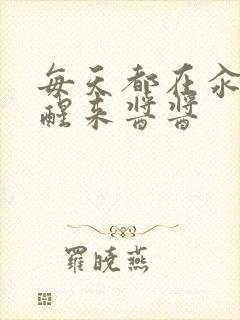 每天都在汆
醒来醬醬
羅曉燕